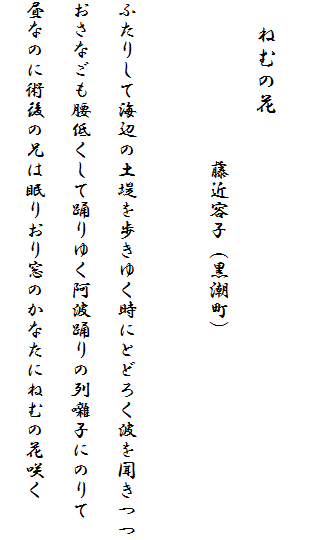 ねむの花
藤近容子（黒潮町）
ふたりして海辺の土堤を歩きゆく時にとどろく波を聞きつつ
おさなごも腰低くして踊りゆく阿波踊りの列囃子にのりて
昼なのに術後の兄は眠りおり窓のかなたにねむの花咲く